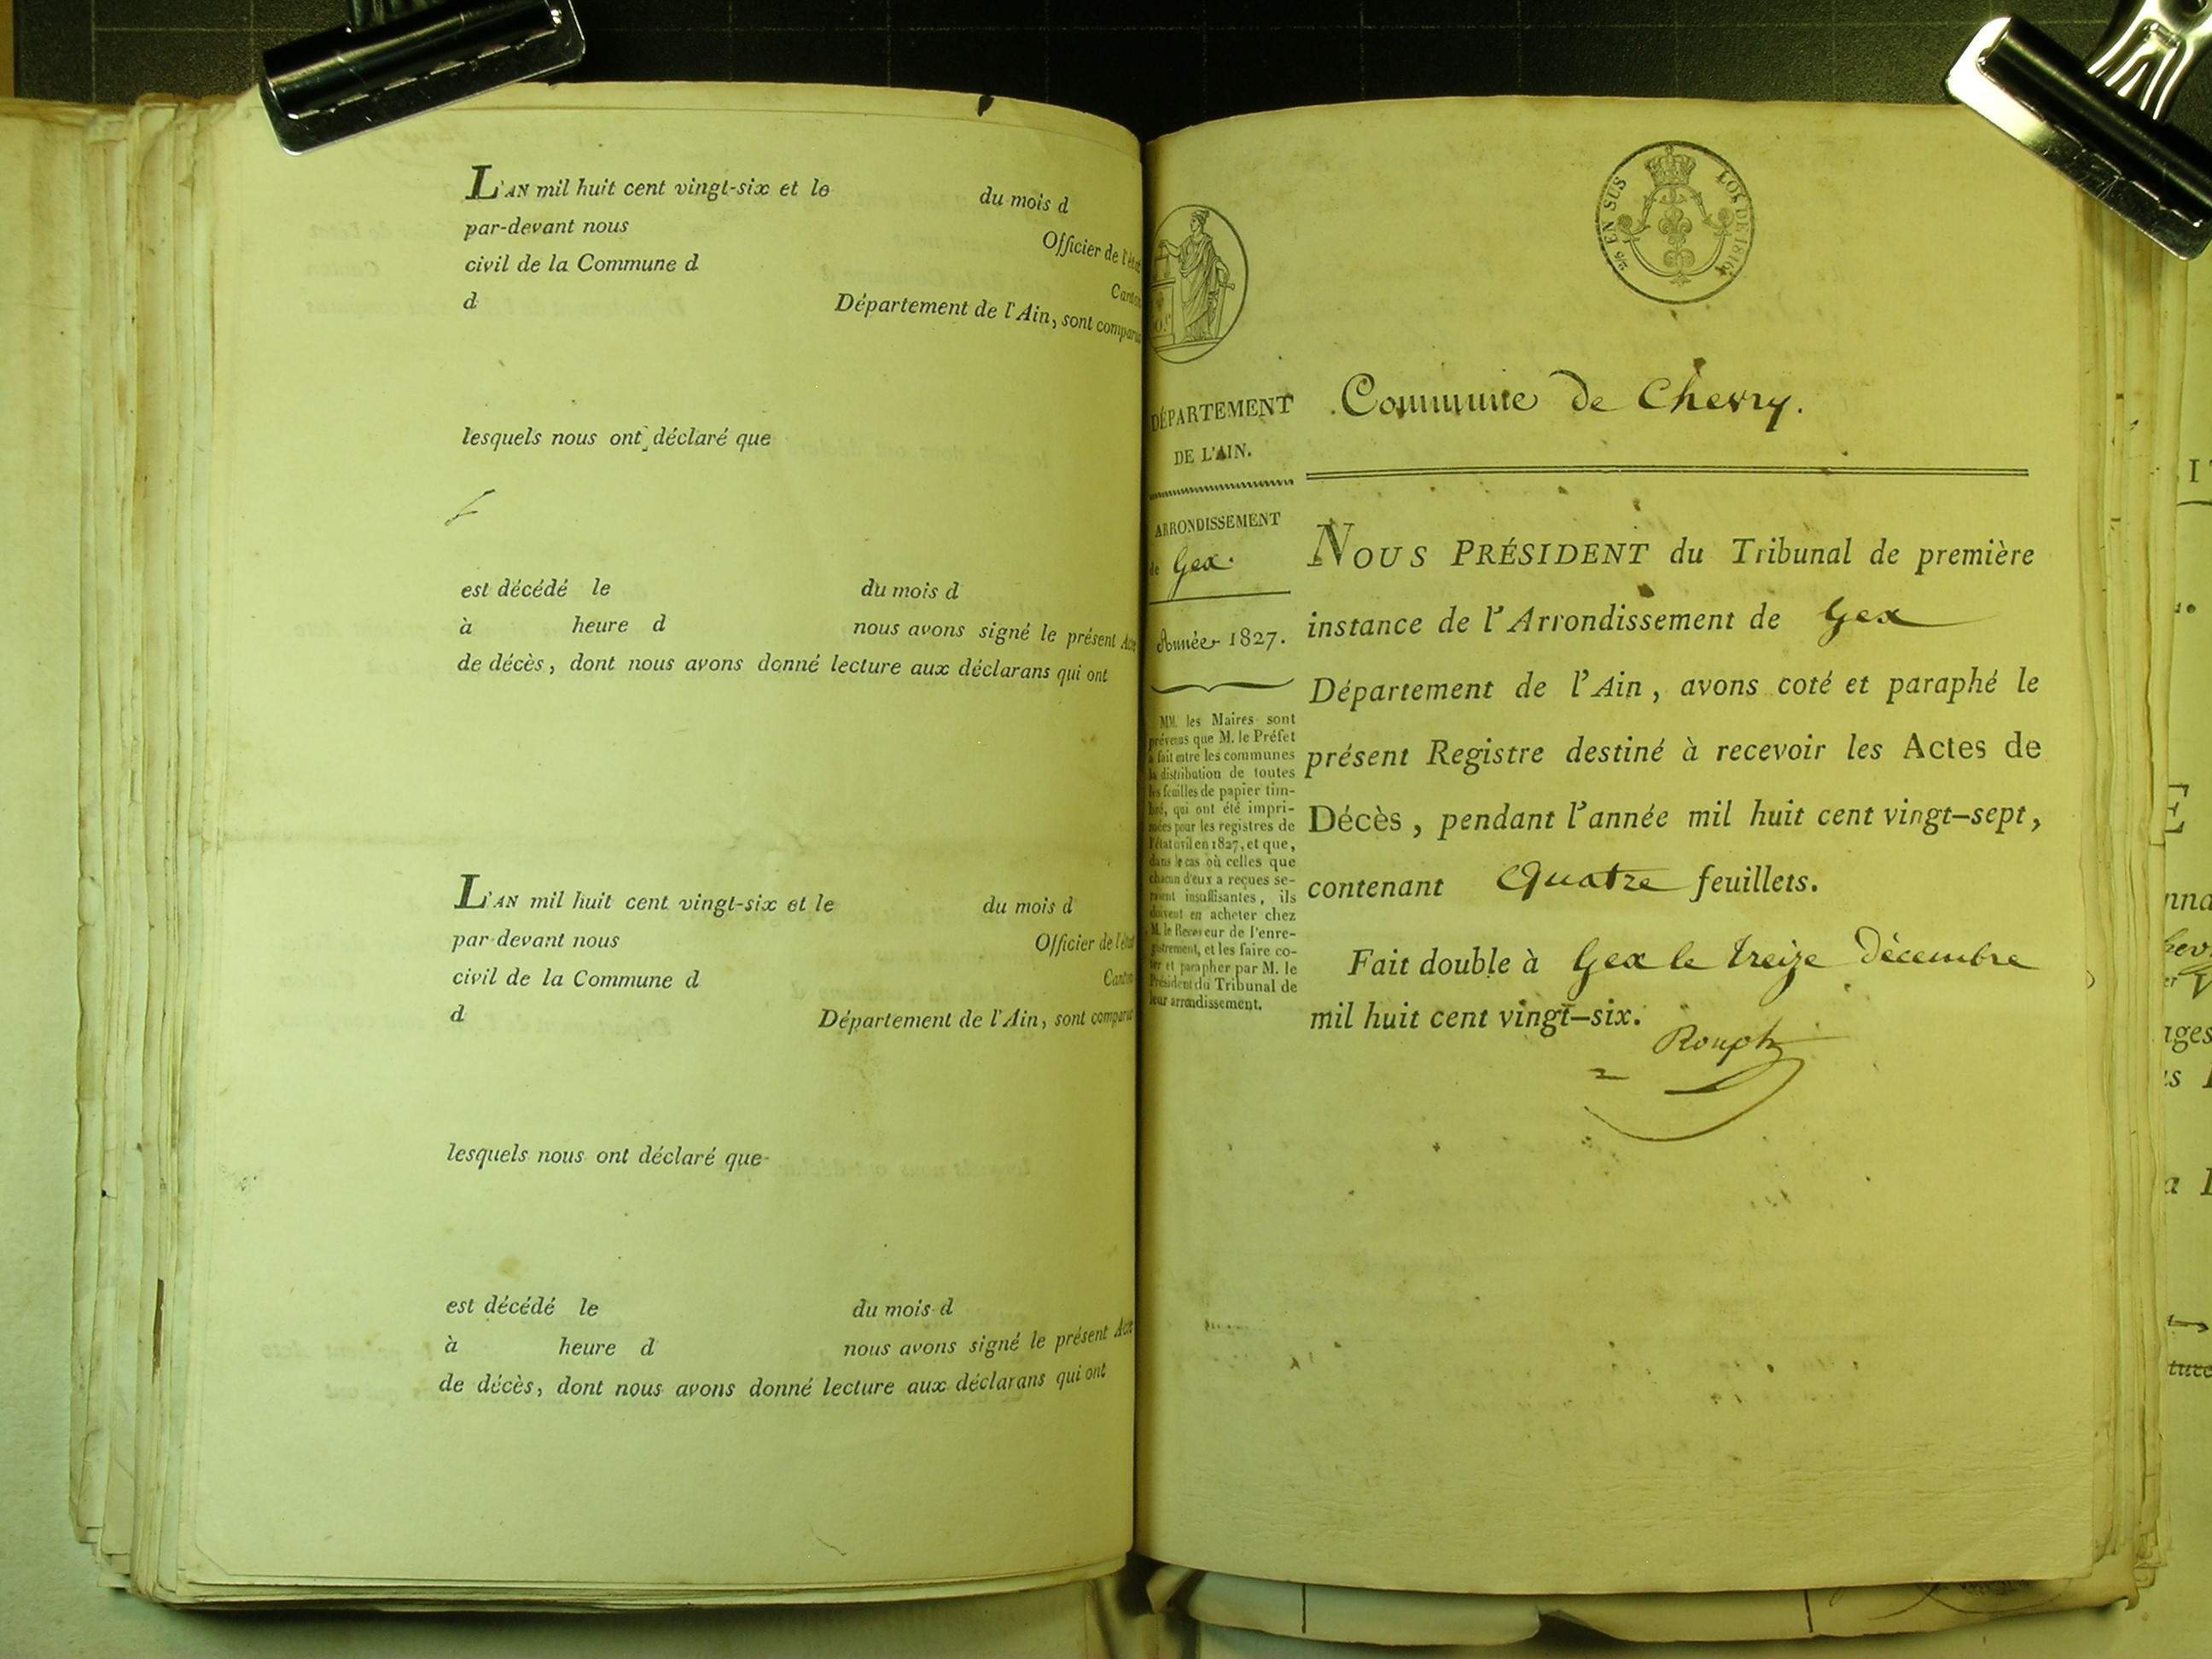 L'AN mil huit cent vingt-six et le du mois d
par-devant nous Officier de l'état
civil de la Commune d Canton
d Département de l'Ain, sont comparus
lesquels nous ont déclaré que
est décédé le du mois d
à heure d nous avons signé le présent Acte
de décès, dont nous avons donné lecture aux déclarans qui ont
L'AN mil huit cent vingt-six et le du mois d
par-devant nous Officier de l'état
civil de la Commune d Canton
d Département de l'Ain, sont comparus
lesquels nous ont déclaré que
est décédé le du mois d
à heure d nous avons signé le présent Acte
de décès, dont nous avons donné lecture aux déclarans qui ont
EN SUS
LOI DE 1816
DÉPARTEMENT
DE L'AIN.
ARRONDISSEMENT
de Gex.
Année 1827.
MM. les Maires sont
prévenus que M. le Préfet
a fait entre les communes
la distribution de toutes
les feuilles de papier tim-
bré, qui ont été impri-
mées pour les registres de
l'état civil en 1827, et que,
dans le cas où celles que
chacun d'eux a reçues se-
raient insuffisantes, ils
doivent en acheter chez
M. le Receveur de l'enre-
gistrement, et les faire co-
ter et parapher par M. le
Président du Tribunal de
leur arrondissement.
Commune de Chevry.
NOUS PRÉSIDENT du Tribunal de première
instance de l'Arrondissement de Gex
Département de l'Ain, avons coté et paraphé le
présent Registre destiné à recevoir les Actes de
Décès, pendant l'année mil huit cent vingt-sept,
contenant Quatre feuillets.
Fait double à Gex le treize Décembre
mil huit cent vingt-six.
Rouph